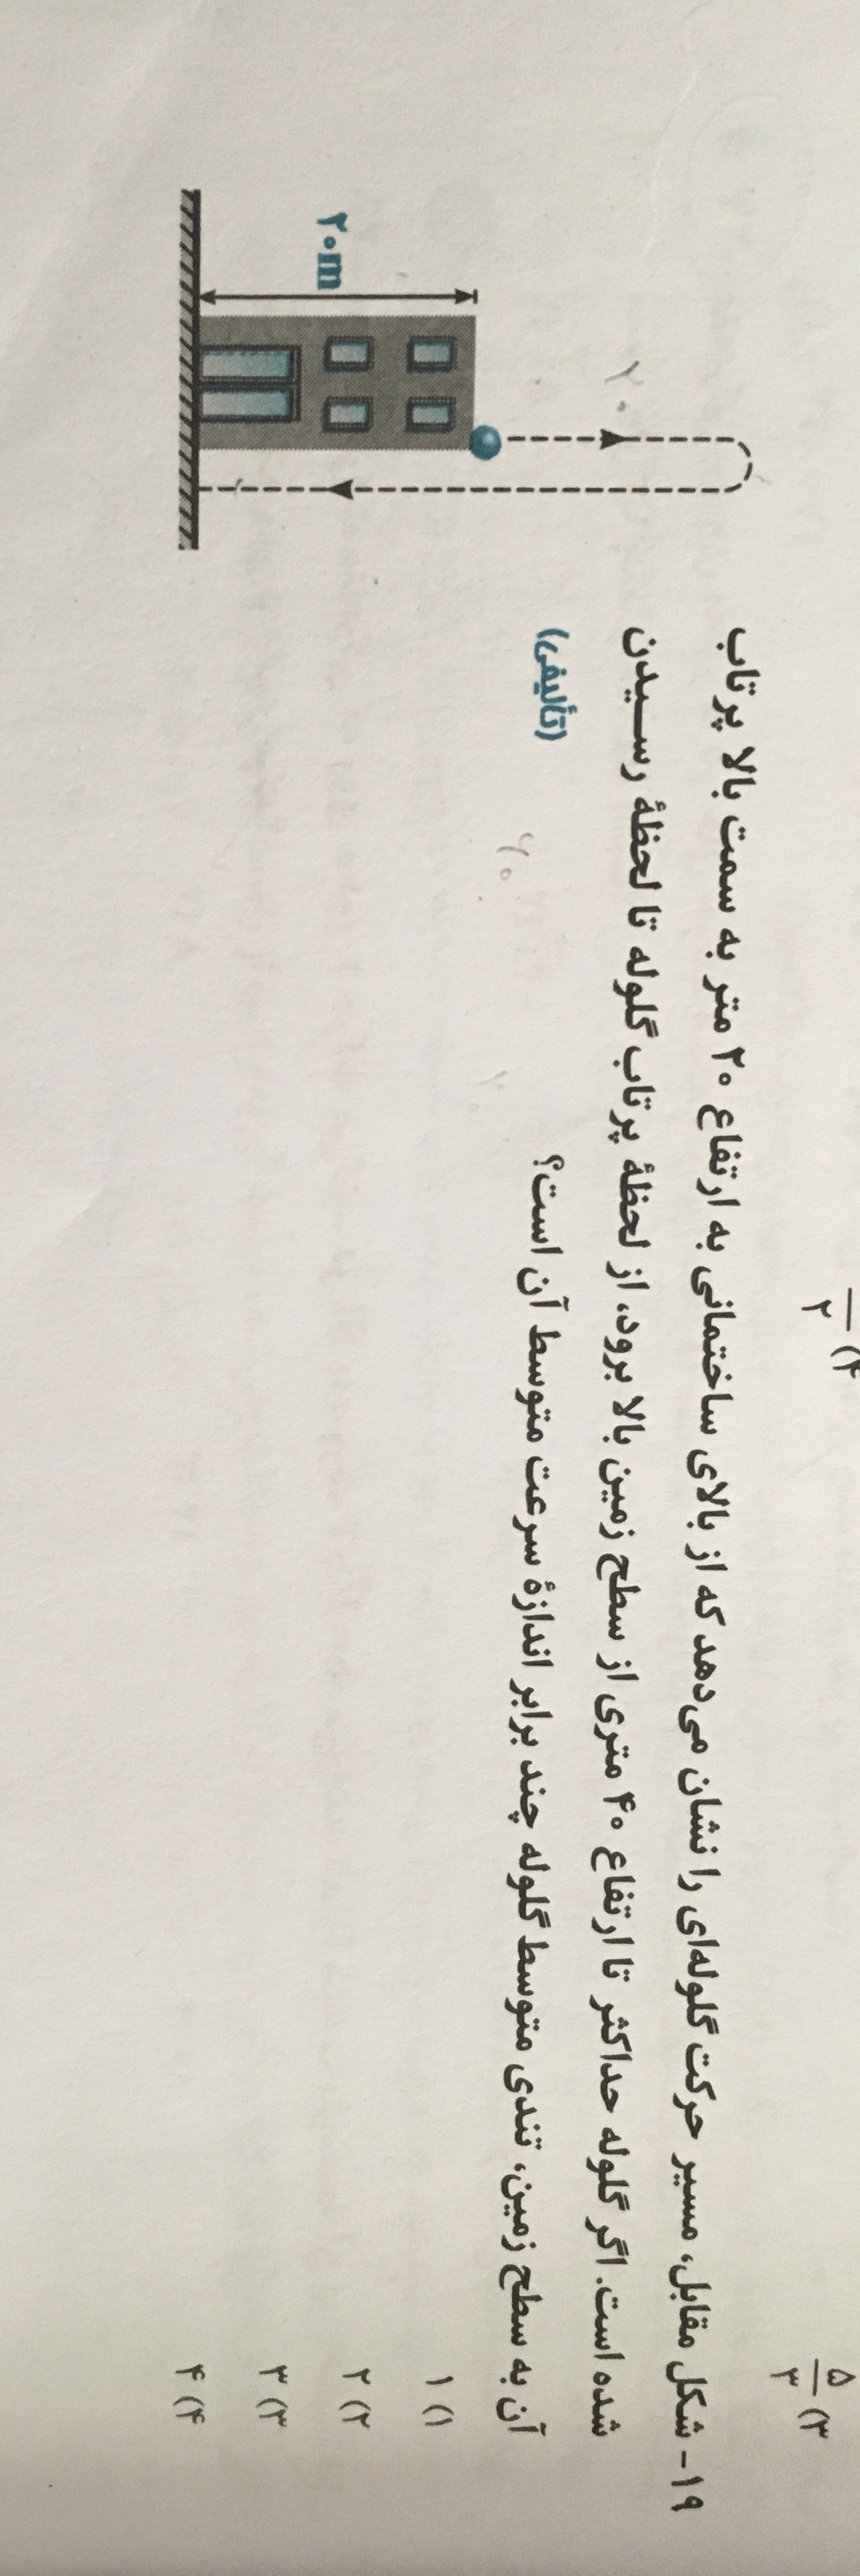 ۵/۳ (۳
۲ (۴
۱۹- شکل مقابل، مسیر حرکت گلوله‌ای را نشان می‌دهد که از بالای ساختمانی به ارتفاع ۲۰ متر به سمت بالا پرتاب
شده است. اگر گلوله حداکثر تا ارتفاع ۴۰ متری از سطح زمین بالا برود، از لحظهٔ پرتاب گلوله تا لحظهٔ رسیدن
آن به سطح زمین، تندی متوسط گلوله چند برابر اندازهٔ سرعت متوسط آن است؟
(تألیفی)
۱ (۱
۲ (۲
۳ (۳
۴ (۴
۲۰m
۲۰
۶۰